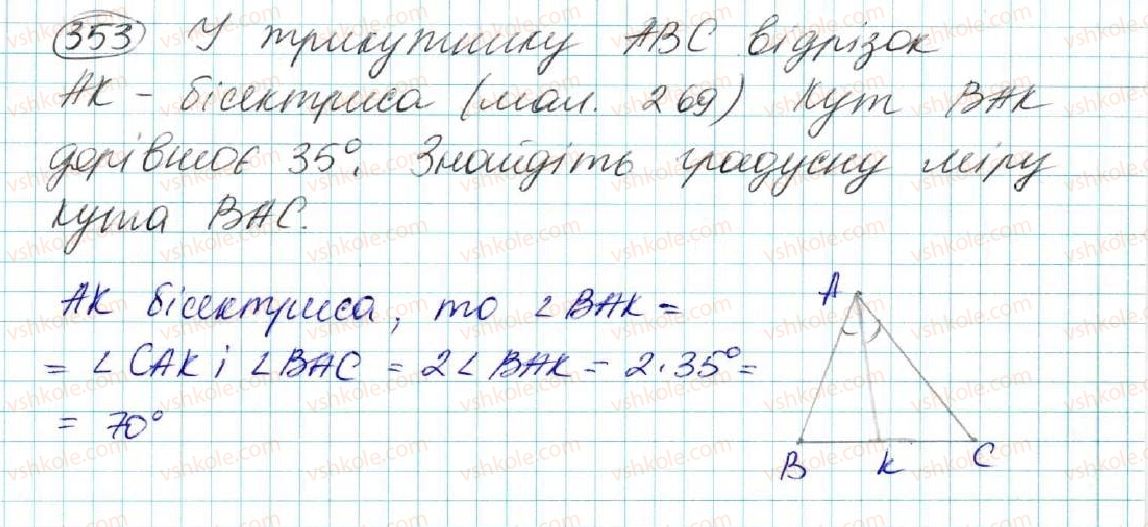 353 У трикутнику ABC відрізок
AK - бісектриса (мал. 269) Кут BAK
дорівнює 35°. Знайдіть градусну міру
кута BAC.
AK бісектриса, то ∠BAK =
= ∠CAK і ∠BAC = 2∠BAK = 2·35° =
= 70°
A
B K C
vshkole.com